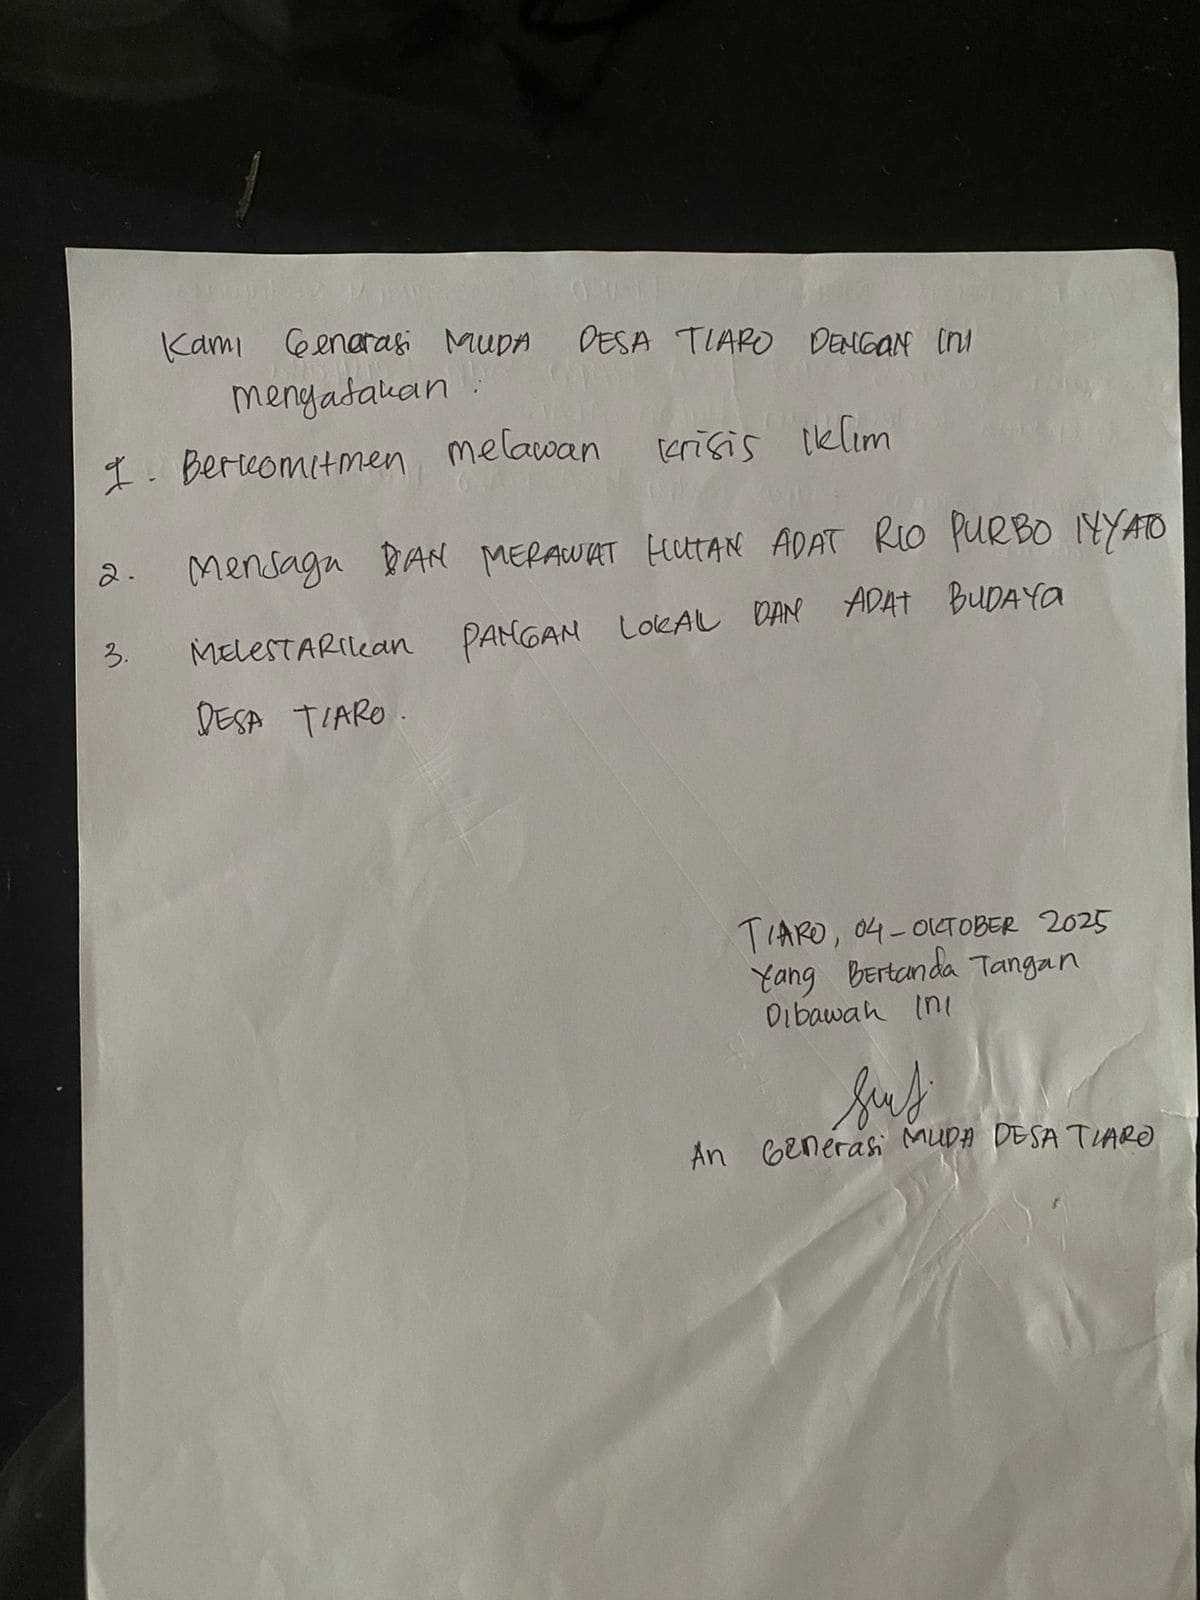 Kami Generasi MUDA DESA TIARO DENGAN INI
menyatakan :
1. Berkomitmen melawan krisis iklim
2. Menjaga DAN MERAWAT HUTAN ADAT RIO PURBO
3. MELESTARIkan PANGAN LOKAL DAN ADAT BUDAYA
DESA TIARO.
TIARO, 04-OKTOBER 2025
Yang Bertanda Tangan
Dibawah INI
An Generasi MUDA DESA TIARO